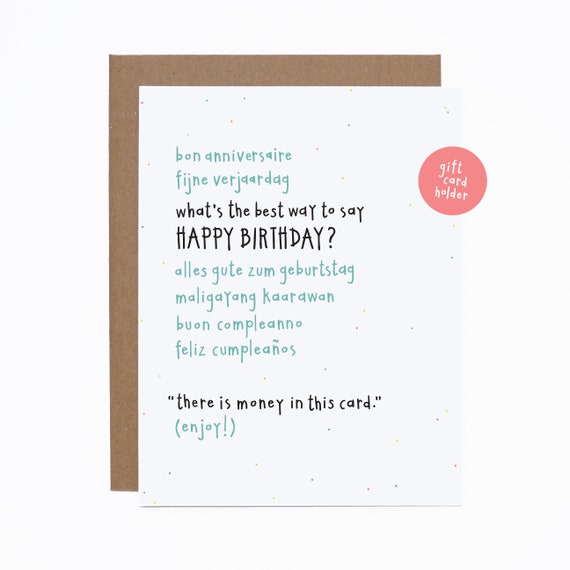 bon anniversaire
fijne verjaardag
what's the best way to say
HAPPY BIRTHDAY?
alles gute zum geburtstag
maligayang kaarawan
buon compleanno
feliz cumpleaños
"there is money in this card."
(enjoy!)
gift
card
holder